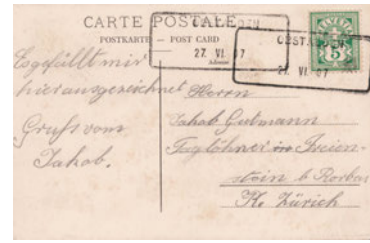 CARTE POSTALE
POSTKARTE – POST CARD
27. VI. 07
Adresse
OBSTALDEN
27. VI. 07
HELVETIA
5
Es gefällt mir
hier ausgezeichnet
Gruss vom
Jakob.
Herrn
Jakob Gutmann
Taglöhner in Freien-
stein b Rorbas
Kt. Zürich